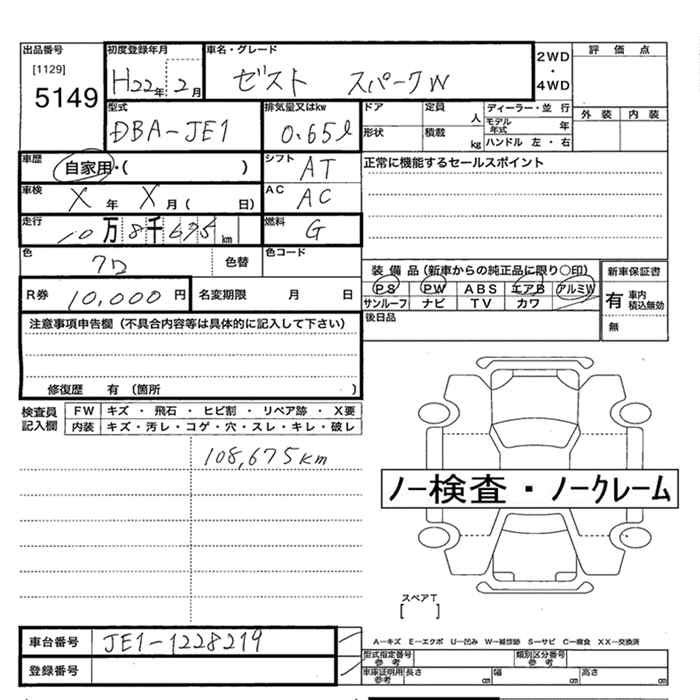 出品番号 [1129] 5149
初度登録年月 H22年 2月
車名・グレード ゼスト スパークW
2WD・4WD
評価点
外装 内装
型式 DBA-JE1
排気量又はkw 0.65ℓ
ドア 定員 人
形状 積載 kg
ディーラー・並行
モデル年式 年
ハンドル 左・右
車歴 自家用・( )
シフト AT
正常に機能するセールスポイント
車検 X年 X月( 日)
AC AC
走行 10万8千675km
燃料 G
色 色替
色コード
装備品(新車からの純正品に限り○印)
PS PW ABS エアB アルミW
サンルーフ ナビ TV カワ
新車保証書
有 車内積込無効
無
R券 10,000円 名変期限 月 日
後日品
注意事項申告欄(不具合内容等は具体的に記入して下さい)
修復歴 有(箇所 )
検査員記入欄
FW キズ・飛石・ヒビ割・リペア跡・X要
内装 キズ・汚レ・コゲ・穴・スレ・キレ・破レ
108,675km
ノー検査・ノークレーム
スペアT
[ ]
車台番号 JE1-1228219
登録番号
A-キズ E-エクボ U-凹み W-補修跡 S-サビ C-腐食 XX-交換済
型式指定番号 参考 類別区分番号 参考
車庫証明用 参考 長さ cm 幅 cm 高さ cm